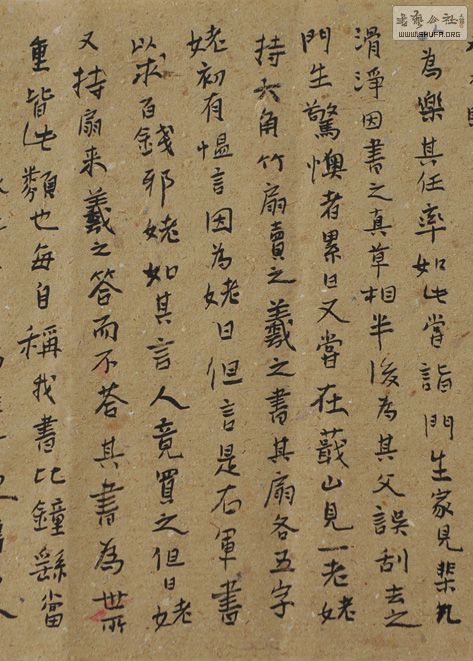 書藝公社
WWW.SHUFA.ORG
為樂其任率如此嘗詣門生家見棐几
滑淨因書之真草相半後為其父誤刮去之
門生驚懊者累日又嘗在蕺山見一老姥
持六角竹扇賣之羲之書其扇各五字
姥初有慍言因為姥曰但言是右軍書
以求百錢邪姥如其言人竟買之但日姥
又持扇来羲之答而不荅其書為世所
重皆此類也每自稱我書比鐘繇當